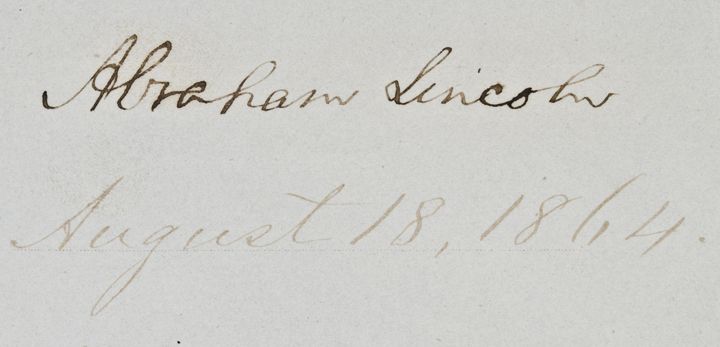 Abraham Lincoln
August 18, 1864.